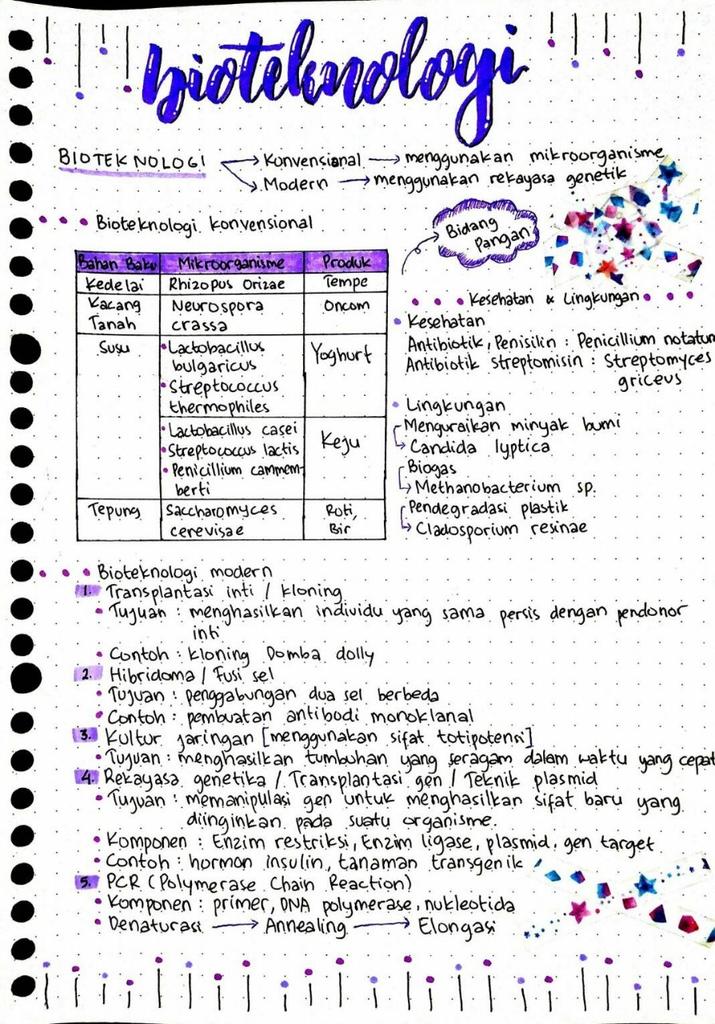 bioteknologi
BIOTEKNOLOGI → Konvensional → menggunakan mikroorganisme
→ Modern → menggunakan rekayasa genetik
Bioteknologi konvensional
Bidang
Pangan
Bahan Baku Mikroorganisme Produk
Kedelai Rhizopus Orizae Tempe
Kacang Tanah Neurospora crassa Oncom
Susu • Lactobacillus bulgaricus Yoghurt
• Streptococcus thermophiles
• Lactobacillus casei Keju
• Streptococcus lactis
• Penicillium cammem-
berti
Tepung Saccharomyces cerevisae Roti, Bir
Kesehatan & Lingkungan
• Kesehatan
Antibiotik, Penisilin : Penicillium notatum
Antibiotik streptomisin : Streptomyces
griceus
• Lingkungan
Menguraikan minyak bumi
→ Candida lyptica
Biogas
→ Methanobacterium sp.
Pendegradasi plastik
→ Cladosporium resinae
Bioteknologi modern
1. Transplantasi inti / kloning
• Tujuan : menghasilkan individu yang sama persis dengan pendonor
inti
• Contoh : kloning Domba dolly
2. Hibridoma / Fusi sel
• Tujuan : penggabungan dua sel berbeda
• Contoh : pembuatan antibodi monoklanal
3. Kultur jaringan [menggunakan sifat totipotensi]
• Tujuan : menghasilkan tumbuhan yang seragam dalam waktu yang cepat
4. Rekayasa genetika / Transplantasi gen / Teknik plasmid
• Tujuan : memanipulasi gen untuk menghasilkan sifat baru yang
diinginkan pada suatu organisme.
• Komponen : Enzim restriksi, Enzim ligase, plasmid, gen target
• Contoh : hormon insulin, tanaman transgenik
5. PCR (Polymerase Chain Reaction)
• Komponen : primer, DNA polymerase, nukleotida
• Denaturasi → Annealing → Elongasi